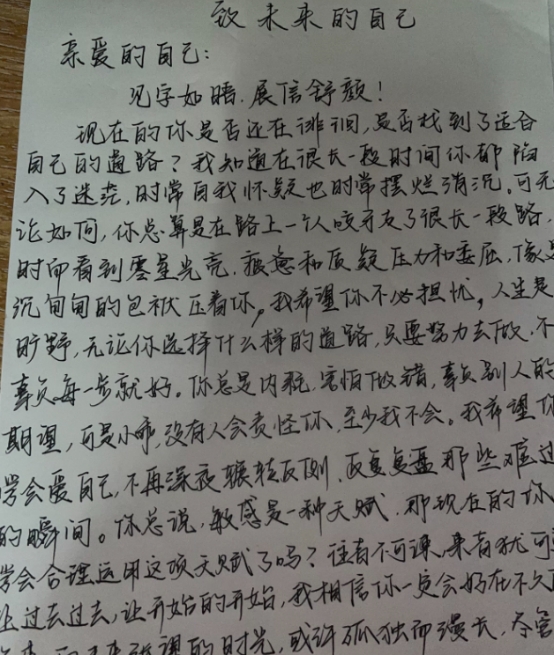 致未来的自己
亲爱的自己：
见字如晤，展信舒颜！
现在的你是否还在徘徊，是否找到了适合
自己的道路？我知道在很长一段时间你都陷
入了迷茫，时常自我怀疑也时常摆烂消沉。可无
论如何，你总算是在路上一个人咬牙走了很长一段路，
时而看到零星光亮，疲惫和质疑压力和委屈，像
沉甸甸的包袱压着你，我希望你不必担忧，人生是
旷野，无论你选择什么样的道路，只要努力去做，不
辜负每一步就好。你总是内耗，害怕做错，辜负别人的
期望，可是小乖，没有人会责怪你，至少我不会。我希望你
学会爱自己，不再深夜辗转反侧，反复复盘那些难过
的瞬间。你总说，敏感是一种天赋，那现在的你
学会合理运用这项天赋了吗？往者不可谏，来者犹可
让过去过去，让开始的开始，我相信你一定会好在不久
的时光，或许孤独而漫长，尽管